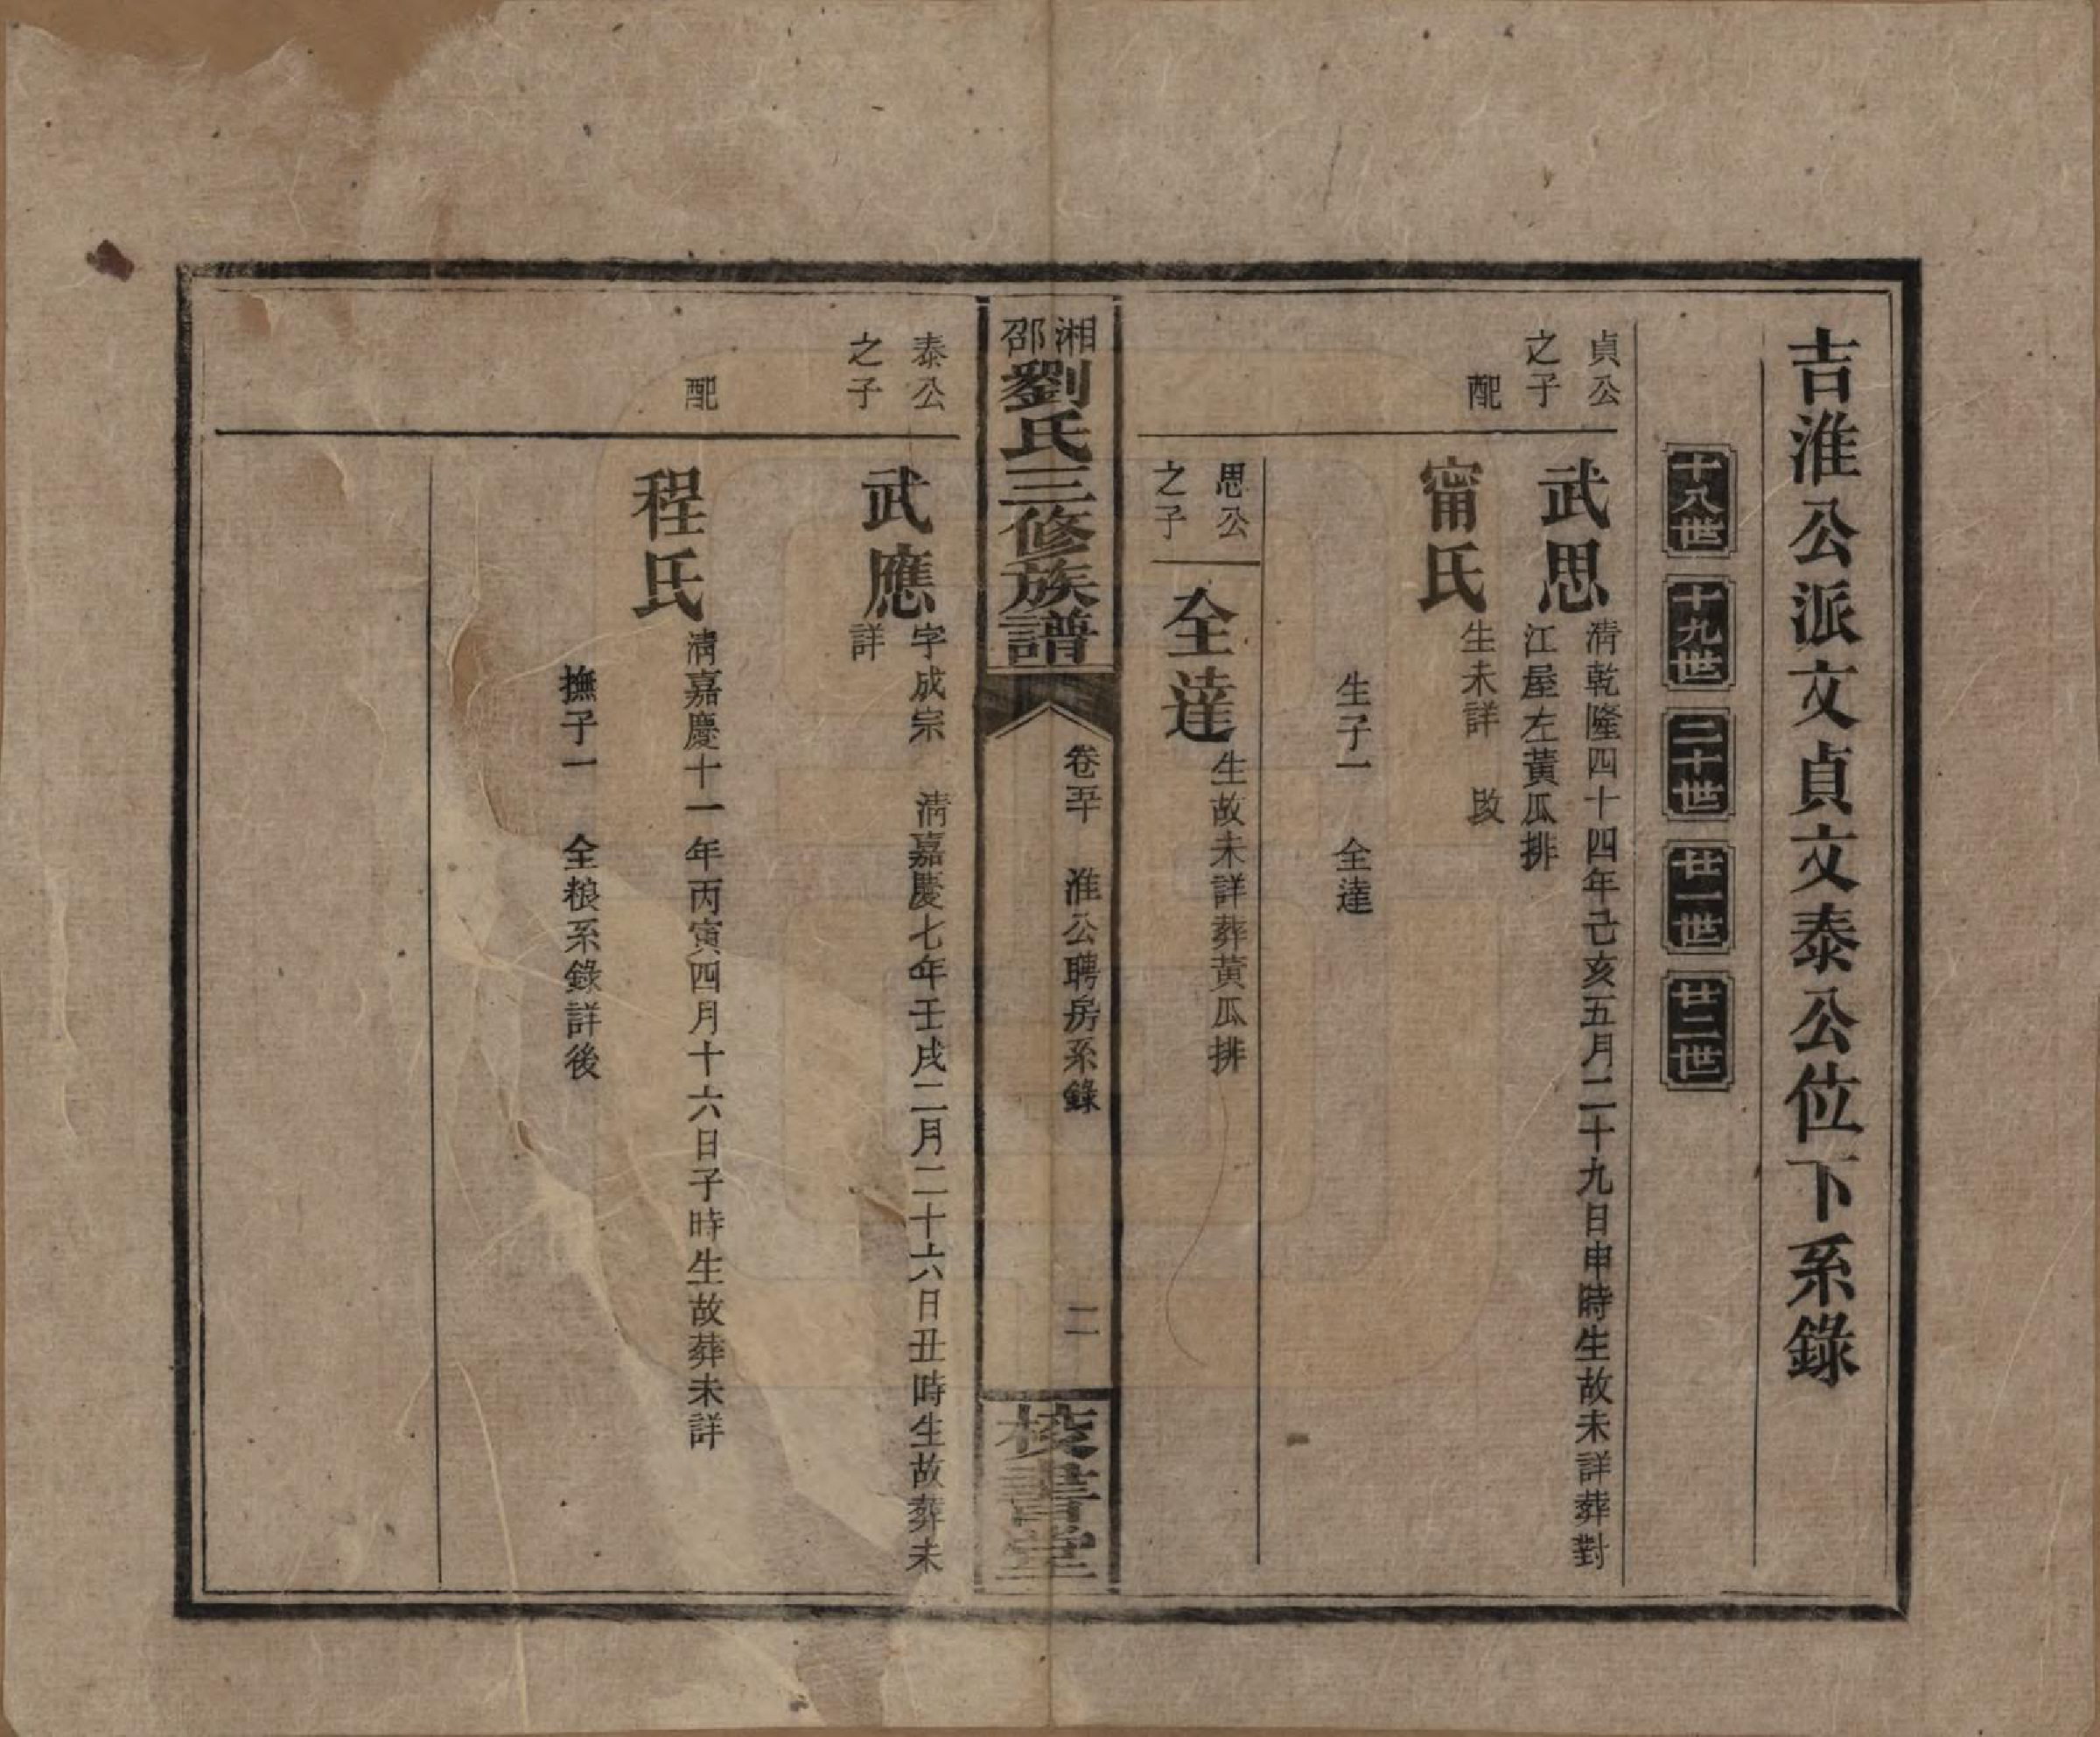 吉淮公派文貞文泰公位下系錄
十八世
十九世
二十世
廿一世
廿二世
貞公
之子
武思
清乾隆四十四年己亥五月二十九日申時生故未詳葬對
江屋左黃瓜排
配
甯氏
生未詳 故
生子一 全達
思公
之子
全達
生故未詳葬黃瓜排
湘邵
劉氏三修族譜
卷五十 淮公聘房系錄
二
校書堂
泰公
之子
武應
字成宗 清嘉慶七年壬戌二月二十六日丑時生故葬未
詳
配
程氏
清嘉慶十一年丙寅四月十六日子時生故葬未詳
撫子一 全粮系錄詳後